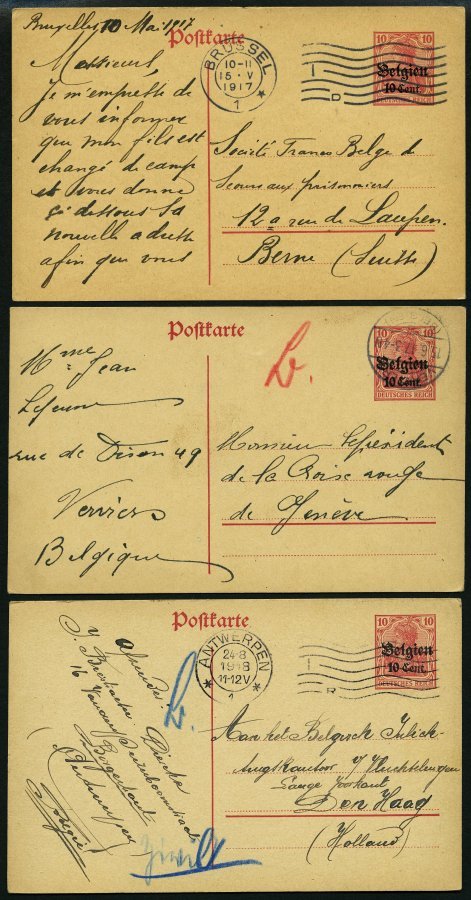 Bruxelles 10 Mai 1917
Postkarte
BRÜSSEL
10-11
15 - V
1917
1
10 10
Belgien
10 Cent.
DEUTSCHES REICH
Messieurs
Je m'empresse de
vous informer
que mon fils est
changé de camp
et vous donne
ci dessous sa
nouvelle adresse
afin que vous
Société Franco Belge de
Secours aux prisonniers
12 a rue de Laupen.
Berne (Suisse)
Postkarte
VERVIERS
15.6.17.3-4N
Belgien
10 Cent.
DEUTSCHES REICH
Mme Jean
Lejeune
rue de Dison 49
Verviers
Belgique
Monsieur le Président
de la Croix rouge
de Genève
Postkarte
ANTWERPEN
24-8
1918
11-12V
1
10 10
Belgien
10 Cent.
DEUTSCHES REICH
Afzender
16
Borgerhout
(Antwerpen)
België
Aan het Belgisch Inlich-
tingskantoor v/ Vluchtelingen
Lange Voorhout
Den Haag
(Holland)